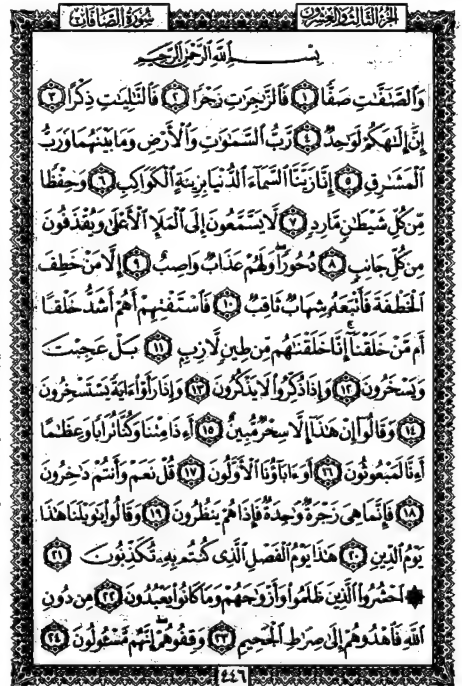 الجزء الثالث والعشرون سورة الصافات
بِسْمِ ٱللَّهِ ٱلرَّحْمَٰنِ ٱلرَّحِيمِ
وَٱلصَّٰٓفَّٰتِ صَفًّا ١ فَٱلزَّٰجِرَٰتِ زَجْرًا ٢ فَٱلتَّٰلِيَٰتِ ذِكْرًا ٣
إِنَّ إِلَٰهَكُمْ لَوَٰحِدٌ ٤ رَّبُّ ٱلسَّمَٰوَٰتِ وَٱلْأَرْضِ وَمَا بَيْنَهُمَا وَرَبُّ
ٱلْمَشَٰرِقِ ٥ إِنَّا زَيَّنَّا ٱلسَّمَآءَ ٱلدُّنْيَا بِزِينَةٍ ٱلْكَوَاكِبِ ٦ وَحِفْظًا
مِّن كُلِّ شَيْطَٰنٍ مَّارِدٍ ٧ لَّا يَسَّمَّعُونَ إِلَى ٱلْمَلَإِ ٱلْأَعْلَىٰ وَيُقْذَفُونَ
مِن كُلِّ جَانِبٍ ٨ دُحُورًا ۖ وَلَهُمْ عَذَابٌ وَاصِبٌ ٩ إِلَّا مَنْ خَطِفَ
ٱلْخَطْفَةَ فَأَتْبَعَهُۥ شِهَابٌ ثَاقِبٌ ١٠ فَٱسْتَفْتِهِمْ أَهُمْ أَشَدُّ خَلْقًا
أَم مَّنْ خَلَقْنَآ ۚ إِنَّا خَلَقْنَٰهُم مِّن طِينٍ لَّازِبٍۭ ١١ بَلْ عَجِبْتَ
وَيَسْخَرُونَ ١٢ وَإِذَا ذُكِّرُوا۟ لَا يَذْكُرُونَ ١٣ وَإِذَا رَأَوْا۟ ءَايَةً يَسْتَسْخِرُونَ
١٤ وَقَالُوٓا۟ إِنْ هَٰذَآ إِلَّا سِحْرٌ مُّبِينٌ ١٥ أَءِذَا مِتْنَا وَكُنَّا تُرَابًا وَعِظَٰمًا
أَءِنَّا لَمَبْعُوثُونَ ١٦ أَوَءَابَآؤُنَا ٱلْأَوَّلُونَ ١٧ قُلْ نَعَمْ وَأَنتُمْ دَٰخِرُونَ
١٨ فَإِنَّمَا هِىَ زَجْرَةٌ وَٰحِدَةٌ فَإِذَا هُمْ يَنظُرُونَ ١٩ وَقَالُوا۟ يَٰوَيْلَنَا هَٰذَا
يَوْمُ ٱلدِّينِ ٢٠ هَٰذَا يَوْمُ ٱلْفَصْلِ ٱلَّذِى كُنتُم بِهِۦ تُكَذِّبُونَ ٢١
۞ ٱحْشُرُوا۟ ٱلَّذِينَ ظَلَمُوا۟ وَأَزْوَٰجَهُمْ وَمَا كَانُوا۟ يَعْبُدُونَ ٢٢ مِن دُونِ
ٱللَّهِ فَٱهْدُوهُمْ إِلَىٰ صِرَٰطِ ٱلْجَحِيمِ ٢٣ وَقِفُوهُمْ ۖ إِنَّهُم مَّسْـُٔولُونَ ٢٤
٤٤٦